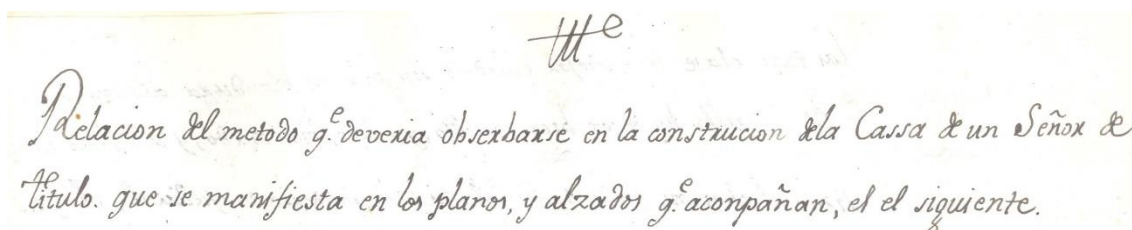 Relacion del metodo q.e deveria obserbarse en la construcion dela Cassa de un Señor de
titulo. que se manifiesta en los planos, y alzados q.e aconpañan, el el siguiente.